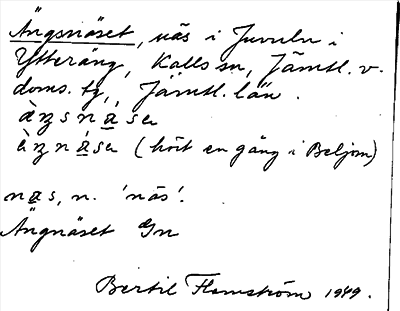 Ängsnäset, näs i Juvuln i
Ytteräng, Kalls sn, Jämtl. v.
doms. tg., Jämtl. län.
àŋsnása
àŋnása (hört en gång i Beljom)
nas, n. 'näs'.
Ängnäset Gn
Bertil Flemström 1949.